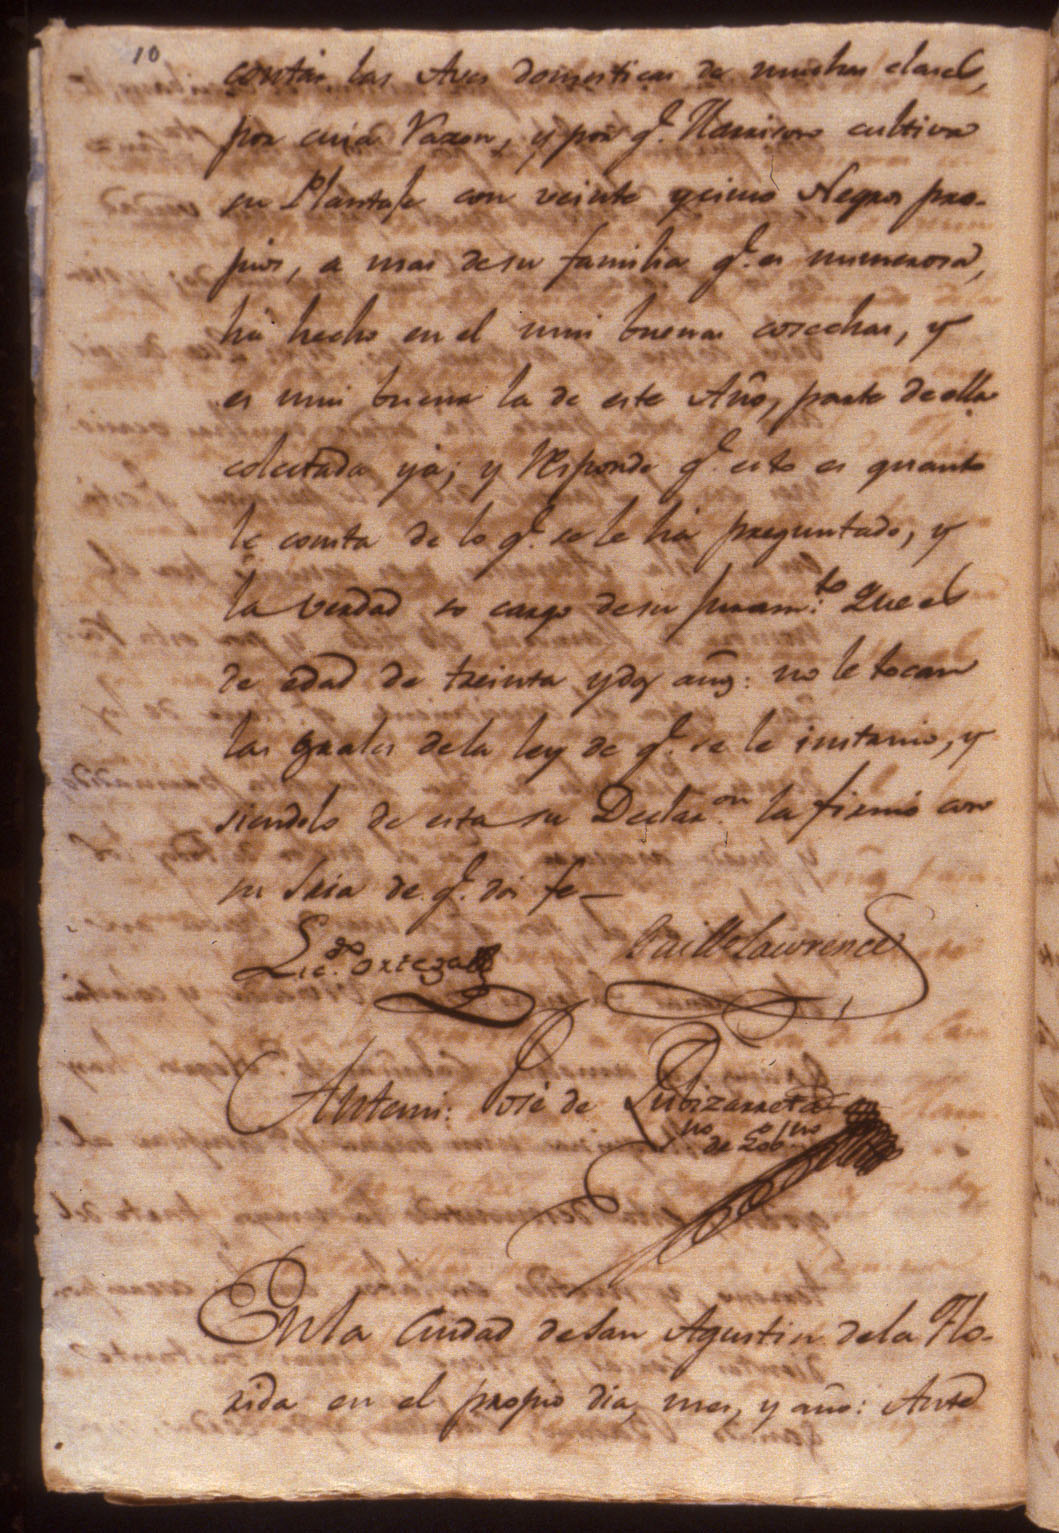 10
contár las Aves domesticas de muchas clases,
por cuia razon, y por q.e Harrison cultiva
su Plantaje con veinte y cinco Negros pro-
pios, a mas de su familia q.e es numerosa,
há hecho en el mui buenas cosechas, y
es mui buena la de este Año, parte de ella
colectada yá; y responde q.e esto es quanto
le consta de lo q.e se le há preguntado, y
la verdad so cargo de su juram.to Que es
de edad de treinta y dos añs: no le tocan
las grales de la ley de q.e se le instruio, y
siendolo de esta su Declar.on la firmó con
su Sria de q.e doi fe—
Lic.do Ortega Lawrence
Antemi: José de Zubizarreta
no de Gob.no
En la Ciudad de San Agustin de la Flo-
rida en el propio dia, mes, y año: Ante